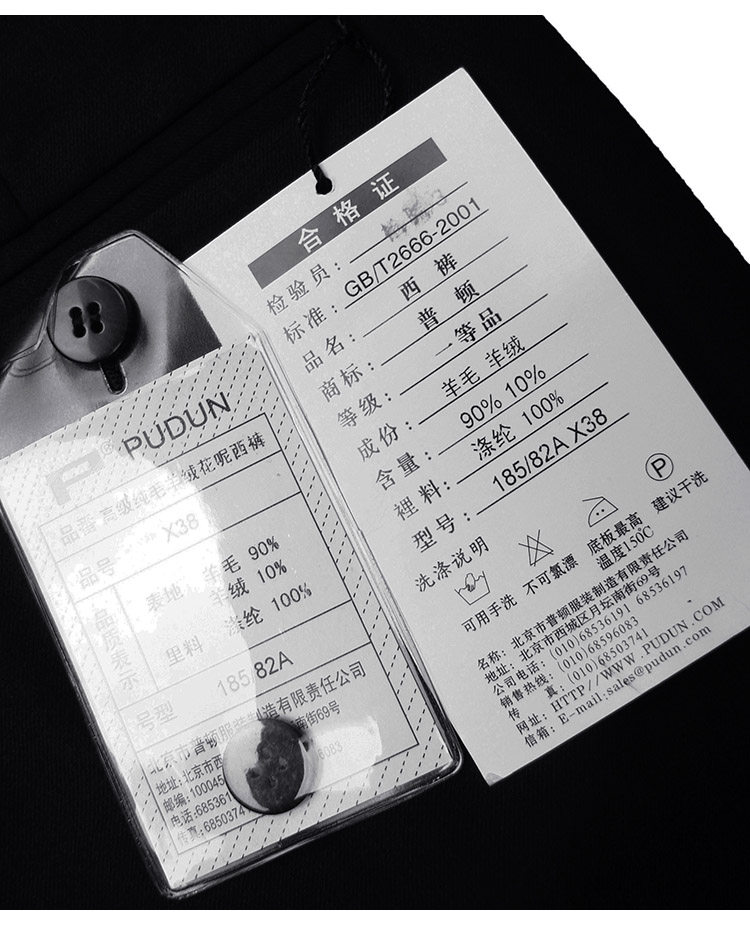 合格证
检验员：
标准：GB/T2666-2001
品名：西裤
商标：普顿
等级：一等品
成份：羊毛 羊绒
含量：90% 10%
裡料：涤纶 100%
型号：185/82A X38
洗涤说明
可用手洗
不可氯漂
底板最高
温度150℃
P
建议干洗
名称：北京市普顿服装制造有限责任公司
地址：北京市西城区月坛南街69号
公司电话：(010)68536191 68536197
销售热线：(010)68596083
传 真：(010)68503741
网址：HTTP://WWW.PUDUN.COM
信箱：E-mail:sales@pudun.com
P® PUDUN
品名 高级纯毛羊绒花呢西裤
品号 X38
品质表示
表地 羊毛 90%
羊绒 10%
里料 涤纶 100%
号型 185/82A
北京市普顿服装制造有限责任公司
地址：北京市西 南街69号
邮编：10004
电话：685361 6083
传真：6850374